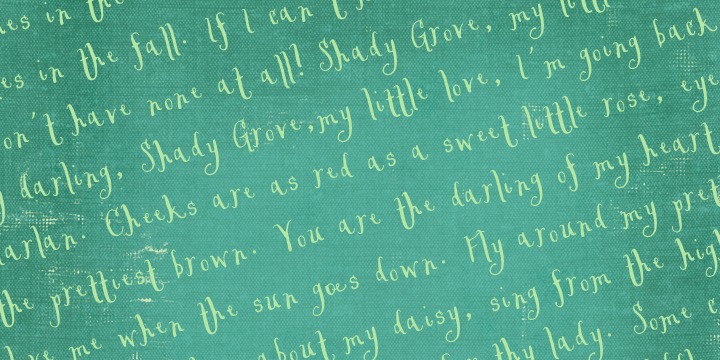 es in the
es in the fall. If I can't
on't have none at all! Shady Grove, my little
darling, Shady Grove, my little love, I'm going back
arlan. Cheeks are as red as a sweet little rose, eye
the prettiest brown. You are the darling of my heart
me when the sun goes down. Fly around my pret
about my daisy, sing from the hig
thy lady. Some